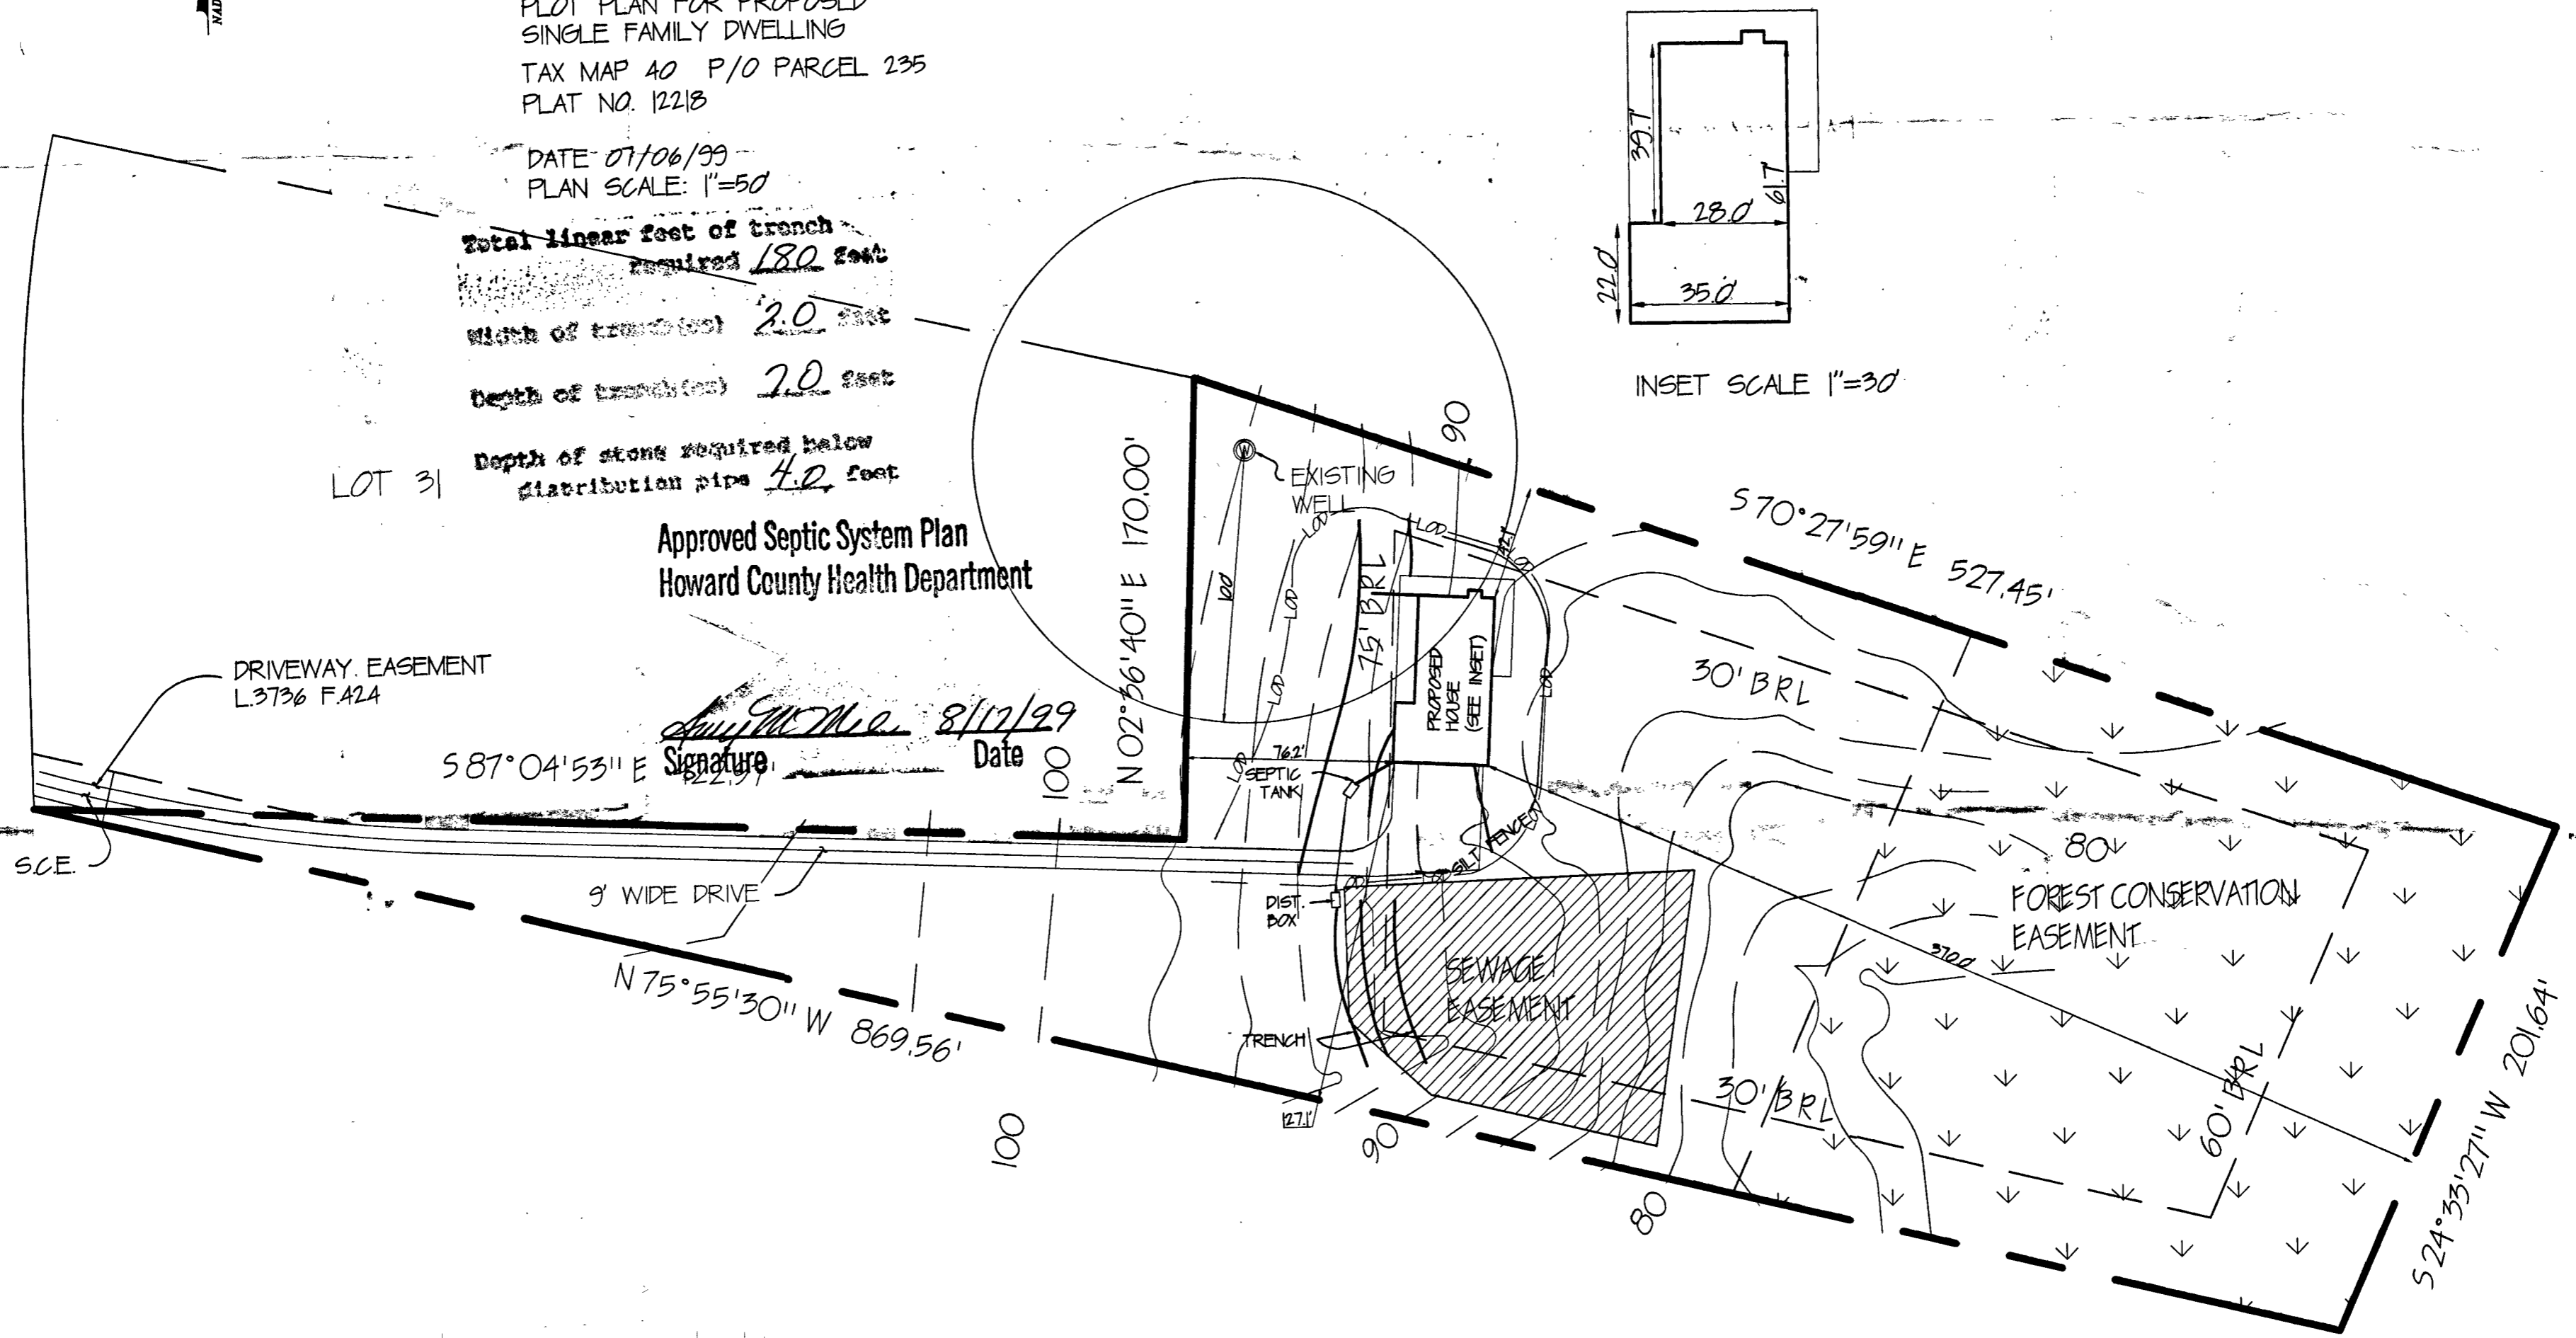 NAD
PLOT PLAN FOR PROPOSED
SINGLE FAMILY DWELLING
TAX MAP 40 P/O PARCEL 235
PLAT NO. 12218
DATE 07/06/99
PLAN SCALE: 1"=50'
Total linear feet of trench
required 180 feet
Width of trench(es) 2.0 feet
Depth of trench(es) 7.0 feet
Depth of stone required below
distribution pipe 4.0 feet
LOT 31
Approved Septic System Plan
Howard County Health Department
8/17/99
Signature Date
DRIVEWAY EASEMENT
L.3736 F.424
S 87°04'53" E
S.C.E.
9' WIDE DRIVE
N 75°55'30" W 869.56'
N 02°36'40" E 170.00'
100
100
39.7'
61.7'
28.0'
22.0'
35.0'
INSET SCALE 1"=30'
90
EXISTING
WELL
100'
LOD
LOD
LOD
LOD
LOD
LOD
LOD
42.1'
75' BRL
PROPOSED
HOUSE
(SEE INSET)
76.2'
SEPTIC
TANK
LOD
LOD
SILT FENCE
DIST.
BOX
SEWAGE
EASEMENT
TRENCH
127.1'
90
80
S 70°27'59" E 527.45'
30' BRL
80
FOREST CONSERVATION
EASEMENT
370.0'
30' BRL
60' BRL
S 24°33'27" W 201.64'